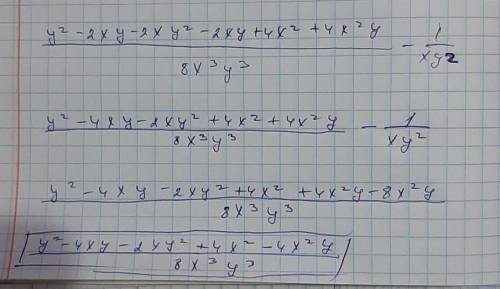 (y² - 2xy - 2xy² - 2xy + 4x² + 4x²y) / 8x³y³ - 1 / xy²
(y² - 4xy - 2xy² + 4x² + 4x²y) / 8x³y³ - 1 / xy²
(y² - 4xy - 2xy² + 4x² + 4x²y - 8x²y) / 8x³y³
(y² - 4xy - 2xy² + 4x² - 4x²y) / 8x³y³